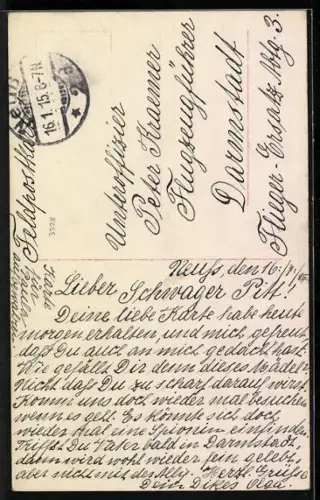 Feldpostkarte
16.1.15. 6-7N.
Unteroffizier
Peter Kraemer
Flugzeugführer
Darmstadt
Flieger-Ersatz Abtg. 3.
3376
Neuss, den 16./1.
Lieber Schwager Pitt!
Deine liebe Karte habe heute
morgen erhalten, und mich gefreut
daß Du auch an mich gedacht hast.
Wie gefällt Dir denn dieses Mädel?
Nicht daß Du zu scharf darauf wirst.
Komm uns doch wieder mal besuchen
wenns geht. Es könnte sich doch
wieder mal eine Spionin einfinden.
Triffst Du Vater bald in Darmstadt,
dann wird wohl wieder fein gelebt,
aber nicht mit den Herzl. Grüße
Dein Dikes Olga.
Karte
für